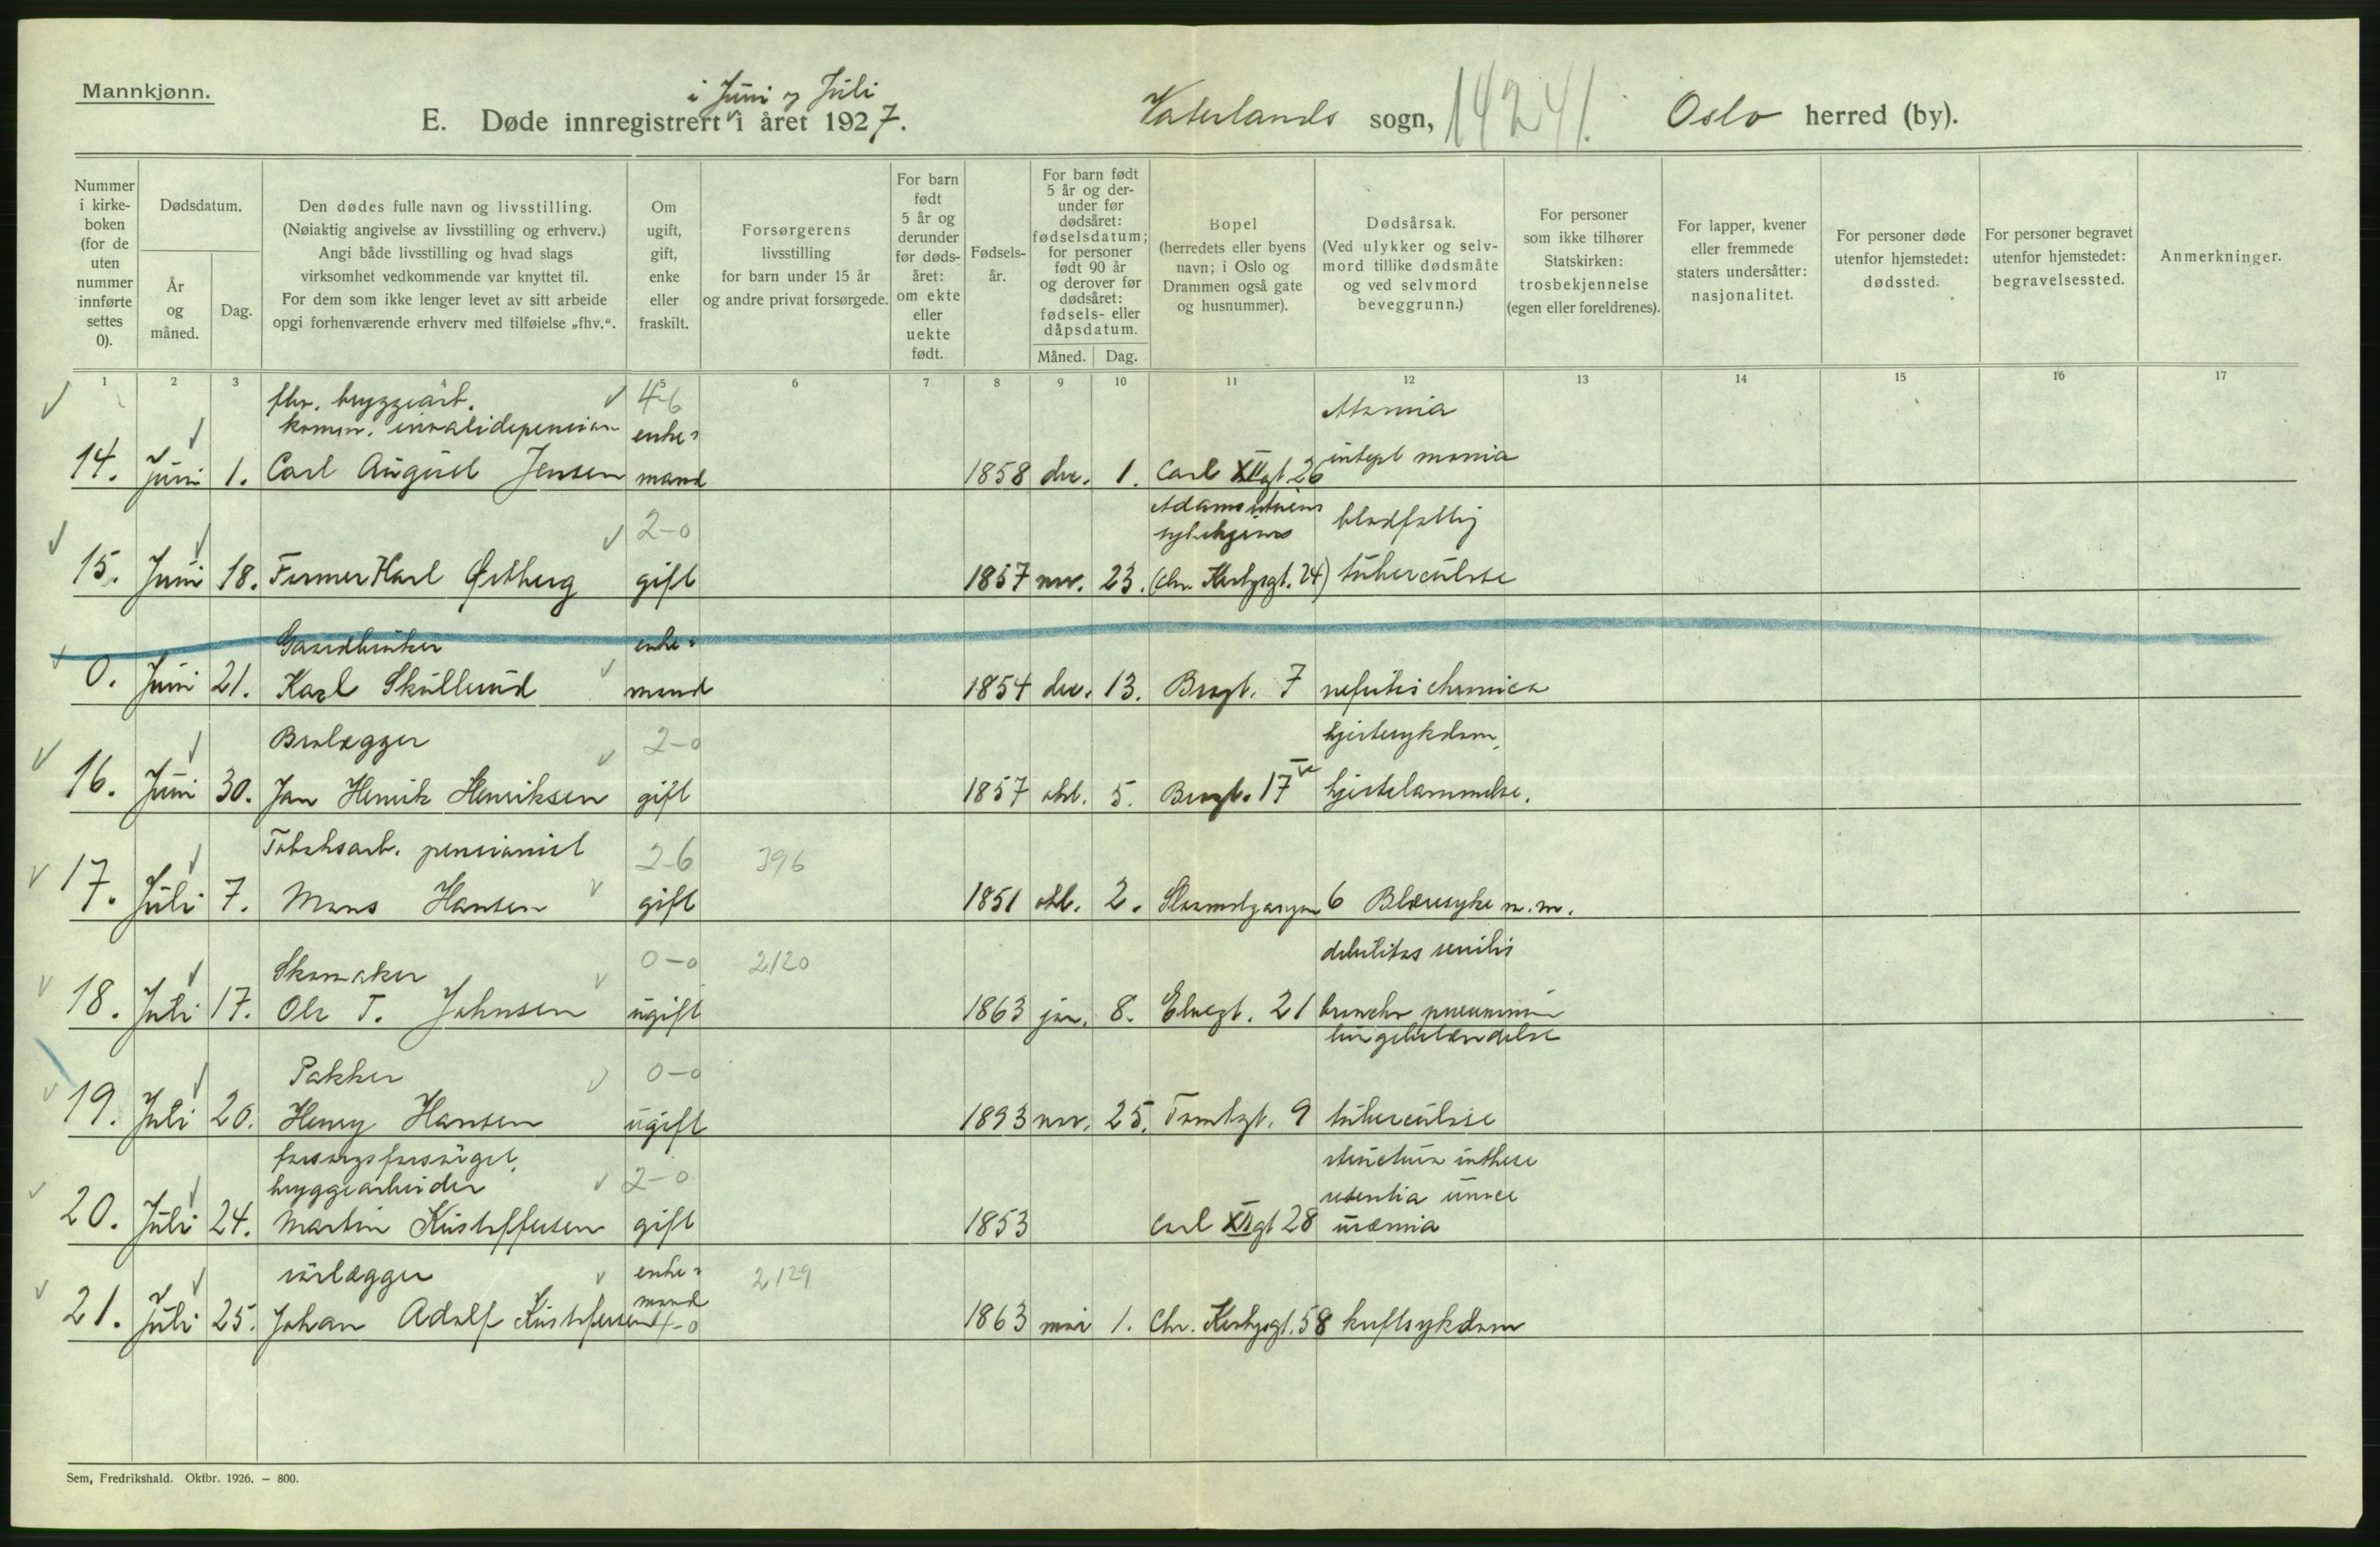 Mannkjønn.
i Juni og Juli
E. Døde innregistrert i året 1927.
Vaterlands sogn, 14241. Oslo herred (by).
Nummer i kirke-boken (for de uten nummer innførte settes 0).
Dødsdatum.
År og måned.
Dag.
Den dødes fulle navn og livsstilling.
(Nøiaktig angivelse av livsstilling og erhverv.)
Angi både livsstilling og hvad slags
virksomhet vedkommende var knyttet til.
For dem som ikke lenger levet av sitt arbeide
opgi forhenværende erhverv med tilføielse „fhv.“.
Om ugift, gift, enke eller fraskilt.
Forsørgerens
livsstilling
for barn under 15 år
og andre privat forsørgede.
For barn født 5 år og derunder før døds-året: om ekte eller uekte født.
Fødsels-år.
For barn født 5 år og der-under før dødsåret: fødselsdatum; for personer født 90 år og derover før dødsåret: fødsels- eller dåpsdatum.
Måned. Dag.
Bopel
(herredets eller byens
navn; i Oslo og
Drammen også gate
og husnummer).
Dødsårsak.
(Ved ulykker og selv-
mord tillike dødsmåte
og ved selvmord
beveggrunn.)
For personer
som ikke tilhører
Statskirken:
trosbekjennelse
(egen eller foreldrenes).
For lapper, kvener
eller fremmede
staters undersåtter:
nasjonalitet.
For personer døde
utenfor hjemstedet:
dødssted.
For personer begravet
utenfor hjemstedet:
begravelsessted.
Anmerkninger.
1 2 3 4 5 6 7 8 9 10 11 12 13 14 15 16 17
fhv. bryggearb. 4-6
komm. invalidepension enke-
14. Juni 1. Carl August Jensen mand 1858 dec. 1. Carl XII gt. 26
2-0 blodfattig
15. Juni 18. Karl Østberg gift 1857 nov. 23. (Chr. Krohgsgt. 24) tuberculose
Gaardbruker enke-
0. Juni 21. Karl Skullerud mand 1854 dec. 13. Brogt. 7 nefritis chronica
Brolægger 2-0 hjertesykdom,
16. Juni 30. Jan Henrik Henriksen gift 1857 okt. 5. Brogt. 17 hjertelammelse.
Tobaksarb. pensionist 2-6 396
17. Juli 7. Mons Hansen gift 1851 okt. 2. 6 Blæresyke m.m.
0-0 2120 debilitas senilis
Skomaker
18. Juli 17. Ole T. Johnsen ugift 1863 jan. 8. Elvegt. 21 broncho pneumonia
lungebetændelse
Pakker 0-0
19. Juli 20. Henry Hansen ugift 1893 nov. 25. Tomtegt. 9 tuberculose
forsorgsforsörget,
bryggearbeider 2-0
20. Juli 24. Martin Kristoffersen gift 1853 Carl XII gt 28 uræmia
rörlægger enke- 2129
mand
21. Juli 25. Johan Adolf Kristofersen 4-0 1863 mai 1. Chr. Krohgsgt. 58 kreftsykdom
Sem, Fredrikshald. Oktbr. 1926. — 800.